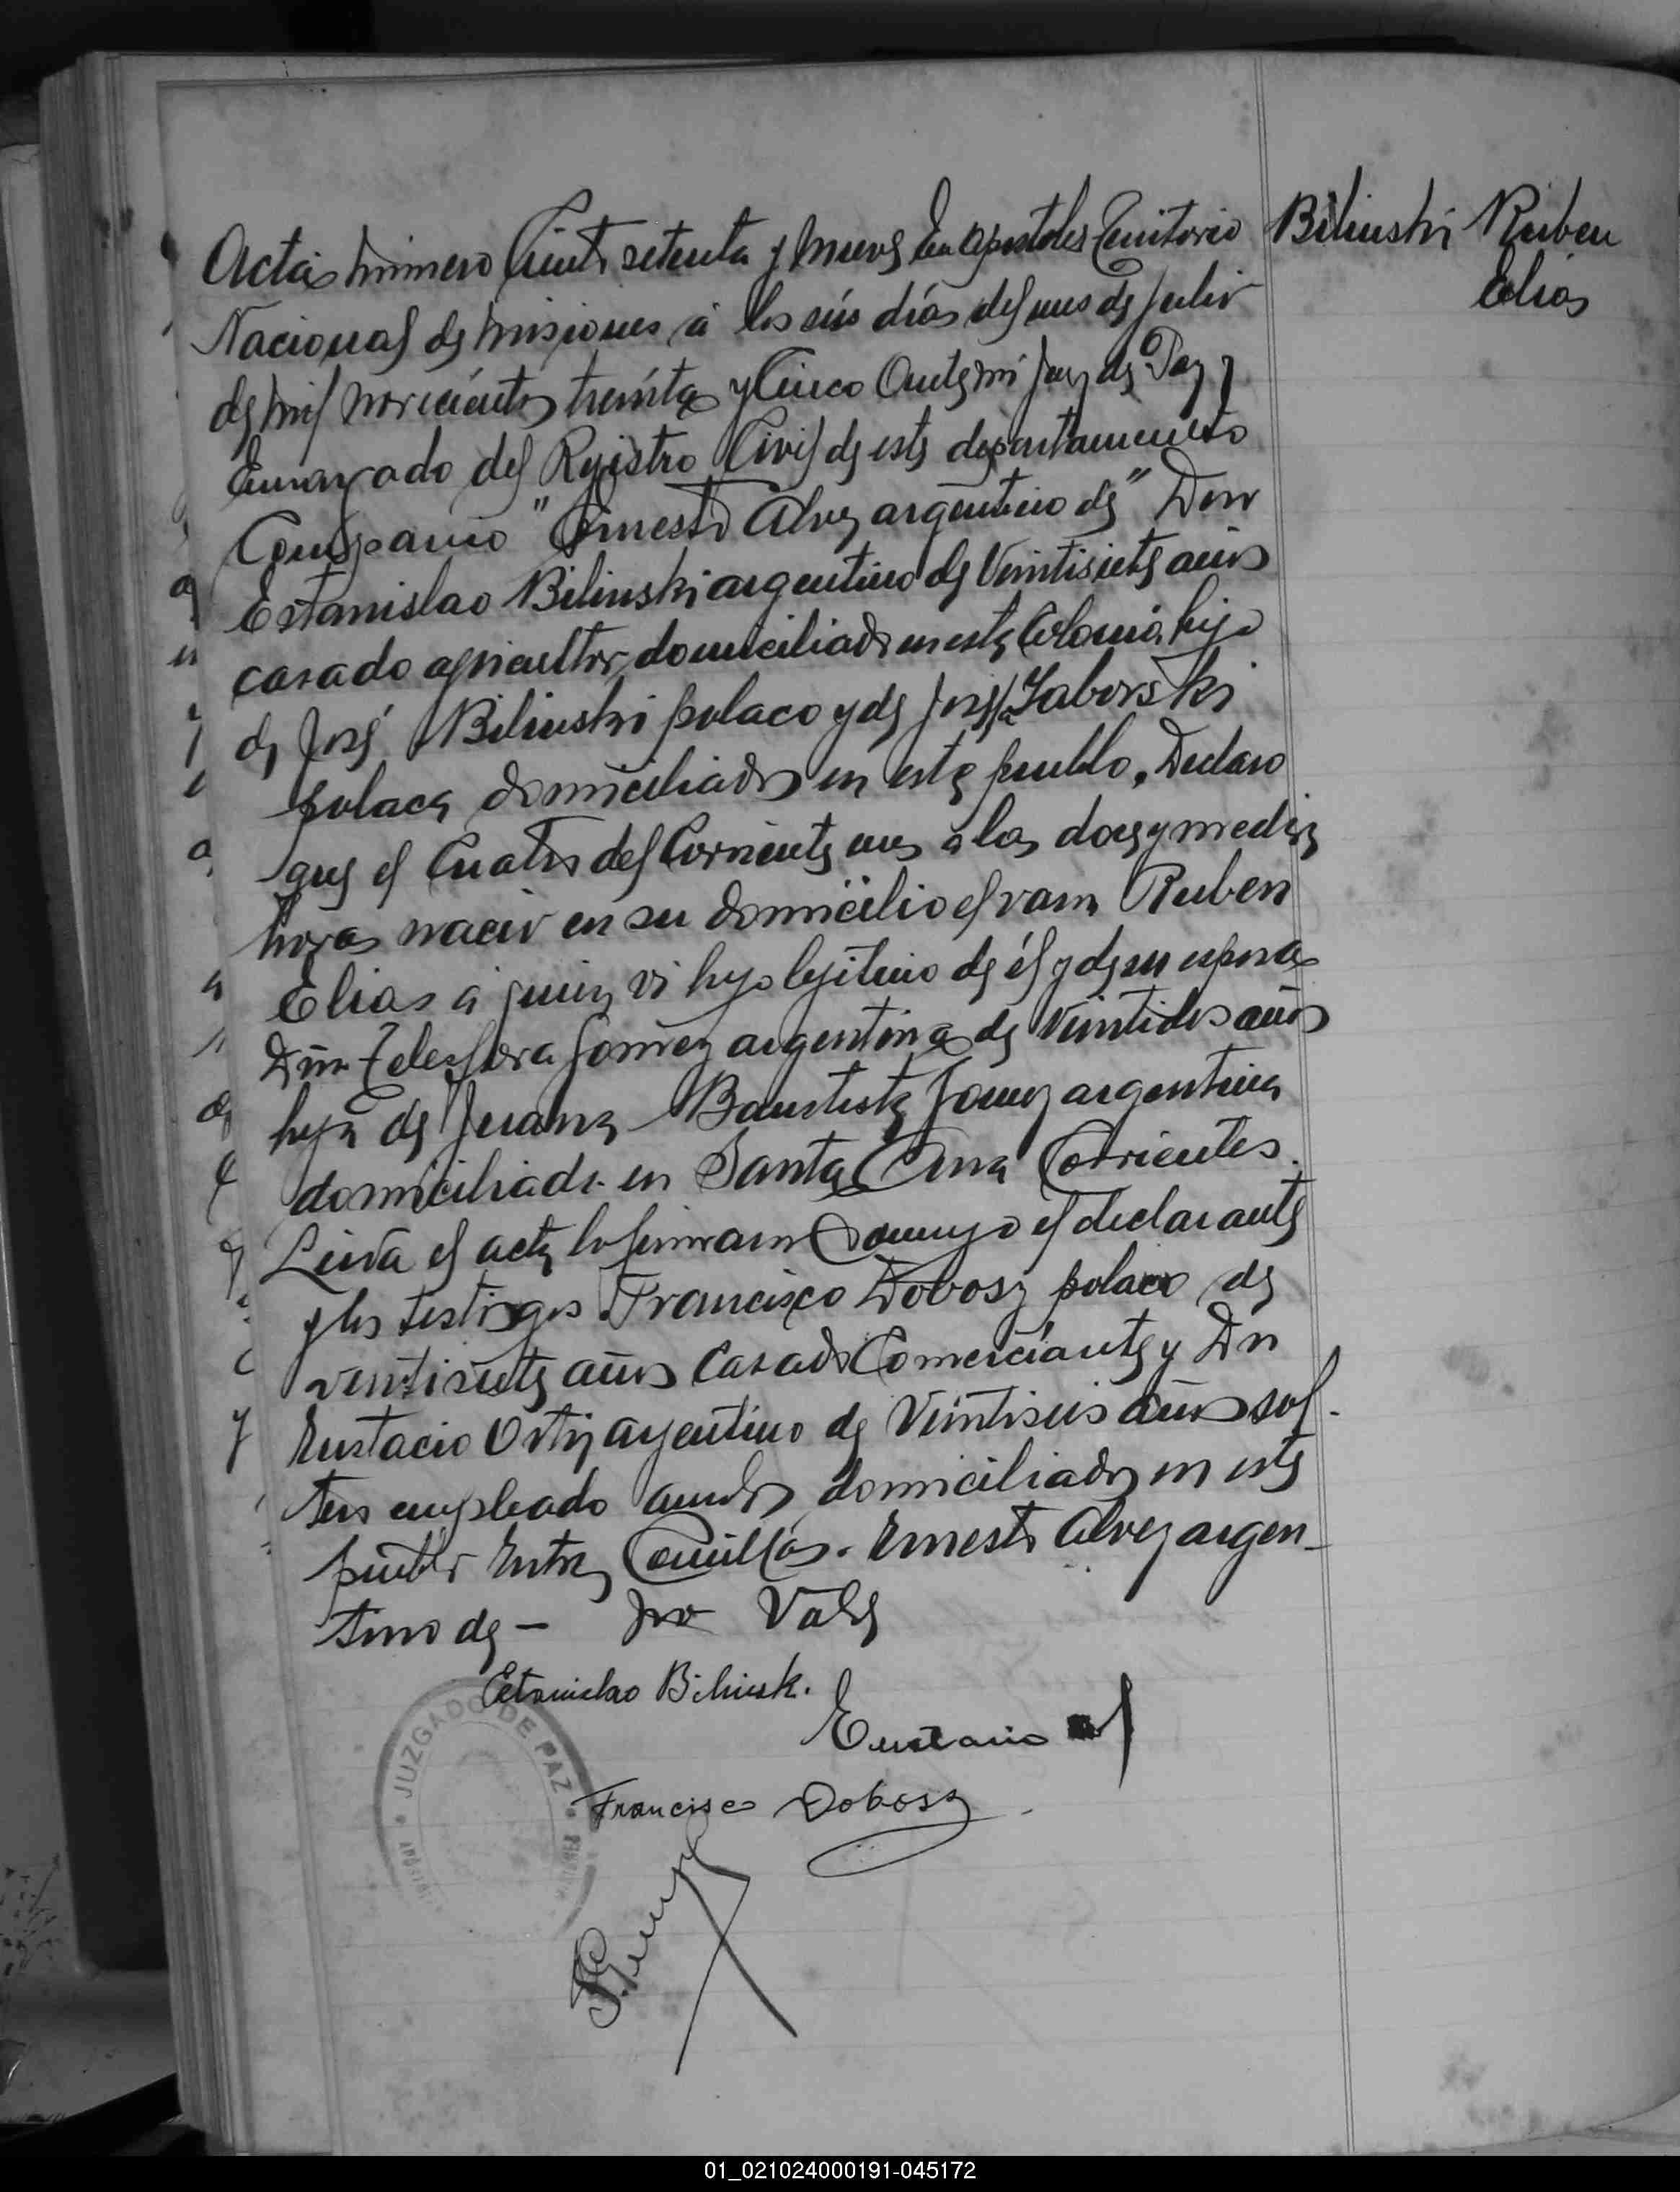 Acta número Ciento setenta y nueve En Apostoles Territorio
Nacional de Misiones á los seis días del mes de Julio
de mil novecientos treinta y Cinco Ante mi Juez de Paz y
Encargado del Registro Civil de este departamento
Compareció "Ernesto Alvez argentino de" Don
Estanislao Bilinski argentino de Veintisiete años
casado agricultor, domiciliado en esta Colonia, hijo
de José Bilinski polaco y de Josefa Zaborski
polaca domiciliados en este pueblo, Declaro
que el Cuatro del Corriente mes a las doce y media
horas nacio en su domicilio el varon Ruben
Elias a quien vi hijo lejitimo de él y de su esposa
Dña Telesfora Gomez argentina de Veintidos años
hija de Juana Bautista Gomez argentina
domiciliada en Santa Ana Corrientes.
Leida el acta la firmaron Conmigo el declarante
y los testigos Francisco Dobosz polaco de
ventisiete años Casado Comerciante y Dn
Eustacio Ortiz argentino de Veintiseis años sol-
tero empleado ambos domiciliados en este
pueblo Entre Comillas. Ernesto Alvez argen-
tino de - no Vale
Bilinski Ruben
Elias
Estanislao Bilinsk.
Eustacio
Francisco Dobosz
JUZGADO DE PAZ
01_021024000191-045172